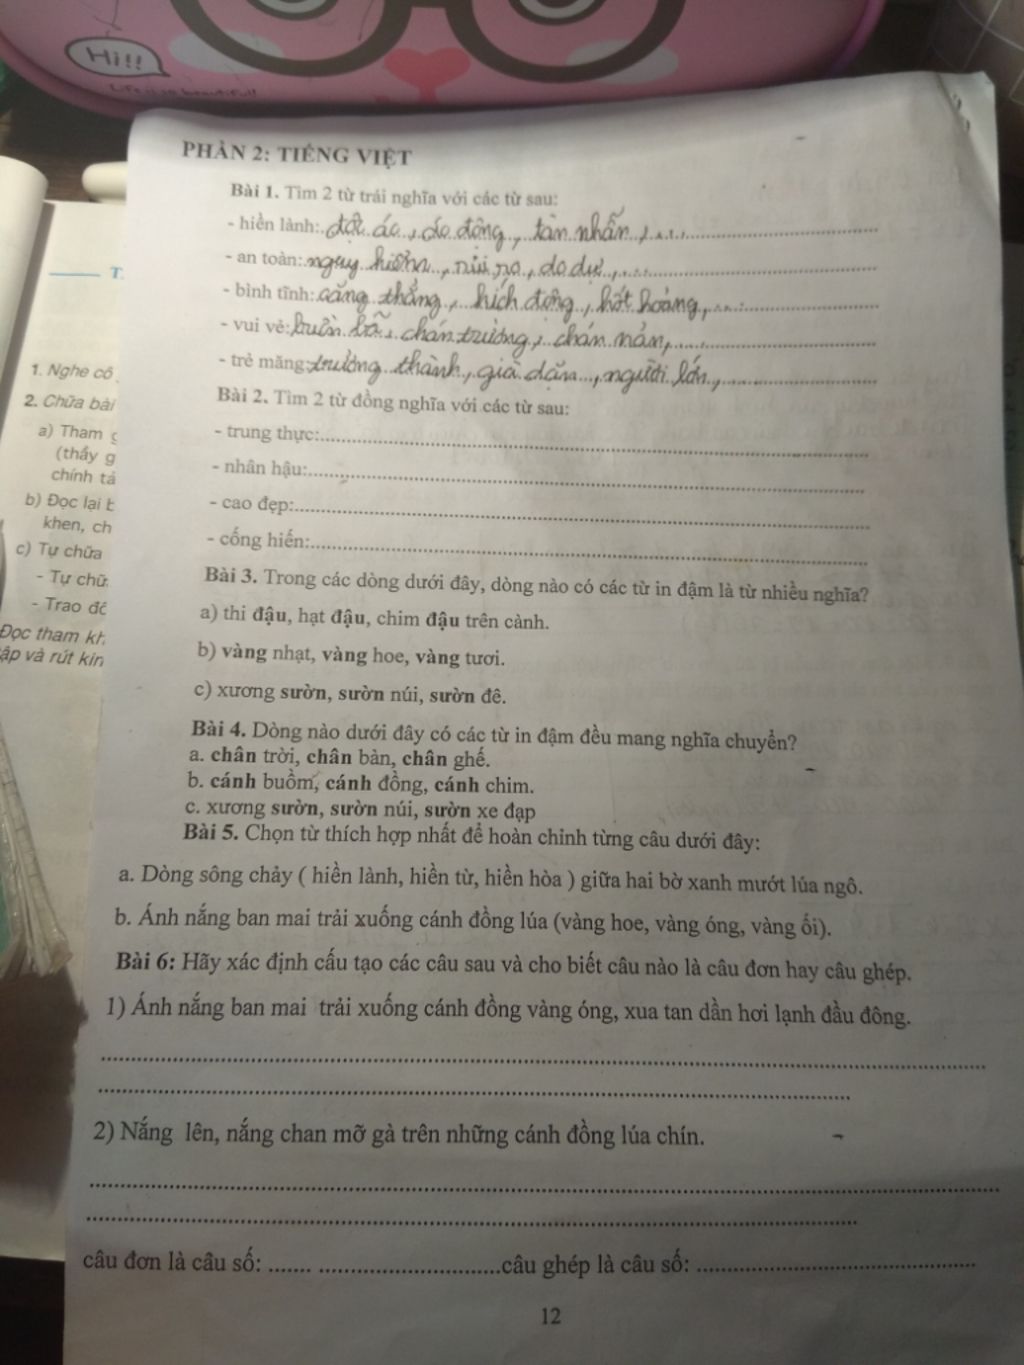 Hi!!
Life is so beautiful!
PHẦN 2: TIẾNG VIỆT
Bài 1. Tìm 2 từ trái nghĩa với các từ sau:
- hiền lành: độc ác, dao động, tàn nhẫn,
- an toàn: nguy hiểm, rủi ro, do dự,
- bình tĩnh: căng thẳng, kích động, hốt hoảng,
- vui vẻ: buồn bã, chán trường, chán nản,
- trẻ măng: trưởng thành, già dặn, người lớn,
Bài 2. Tìm 2 từ đồng nghĩa với các từ sau:
- trung thực:
- nhân hậu:
- cao đẹp:
- cống hiến:
Bài 3. Trong các dòng dưới đây, dòng nào có các từ in đậm là từ nhiều nghĩa?
a) thi đậu, hạt đậu, chim đậu trên cành.
b) vàng nhạt, vàng hoe, vàng tươi.
c) xương sườn, sườn núi, sườn đê.
Bài 4. Dòng nào dưới đây có các từ in đậm đều mang nghĩa chuyển?
a. chân trời, chân bàn, chân ghế.
b. cánh buồm, cánh đồng, cánh chim.
c. xương sườn, sườn núi, sườn xe đạp
Bài 5. Chọn từ thích hợp nhất để hoàn chỉnh từng câu dưới đây:
a. Dòng sông chảy ( hiền lành, hiền từ, hiền hòa ) giữa hai bờ xanh mướt lúa ngô.
b. Ánh nắng ban mai trải xuống cánh đồng lúa (vàng hoe, vàng óng, vàng ối).
Bài 6: Hãy xác định cấu tạo các câu sau và cho biết câu nào là câu đơn hay câu ghép.
1) Ánh nắng ban mai trải xuống cánh đồng vàng óng, xua tan dần hơi lạnh đầu đông.
2) Nắng lên, nắng chan mỡ gà trên những cánh đồng lúa chín.
câu đơn là câu số: ....... ..............................câu ghép là câu số: ..............................
12
T
1. Nghe cô
2. Chữa bài
a) Tham
(thầy g
chính tả
b) Đọc lại
khen, ch
c) Tự chữa
- Tự chữ
- Trao đổ
Đọc tham kh
ập và rút kin